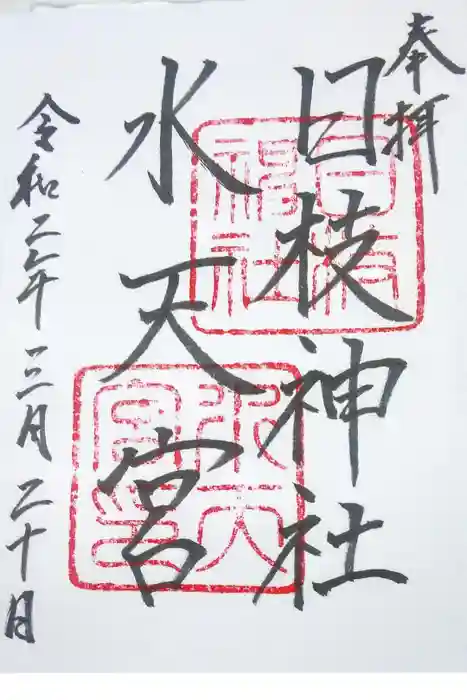 奉拝
日枝神社
水天宮
令和二年三月二十日
日枝神社
水天宮印